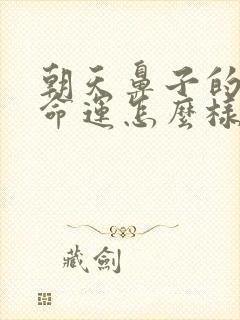 朝天鼻子的
命運怎麼樣
藏劍